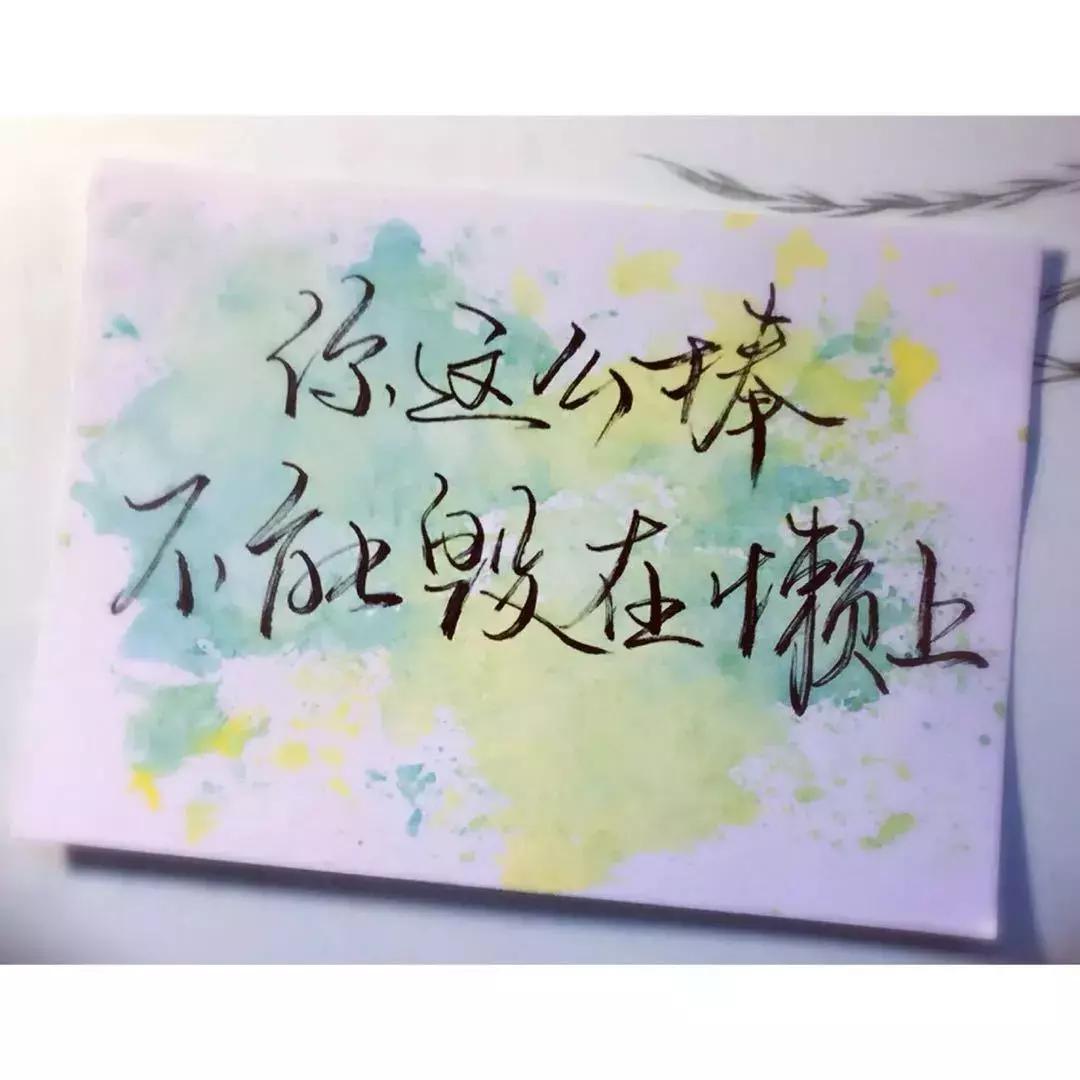 你这么棒
不能毁在懒上